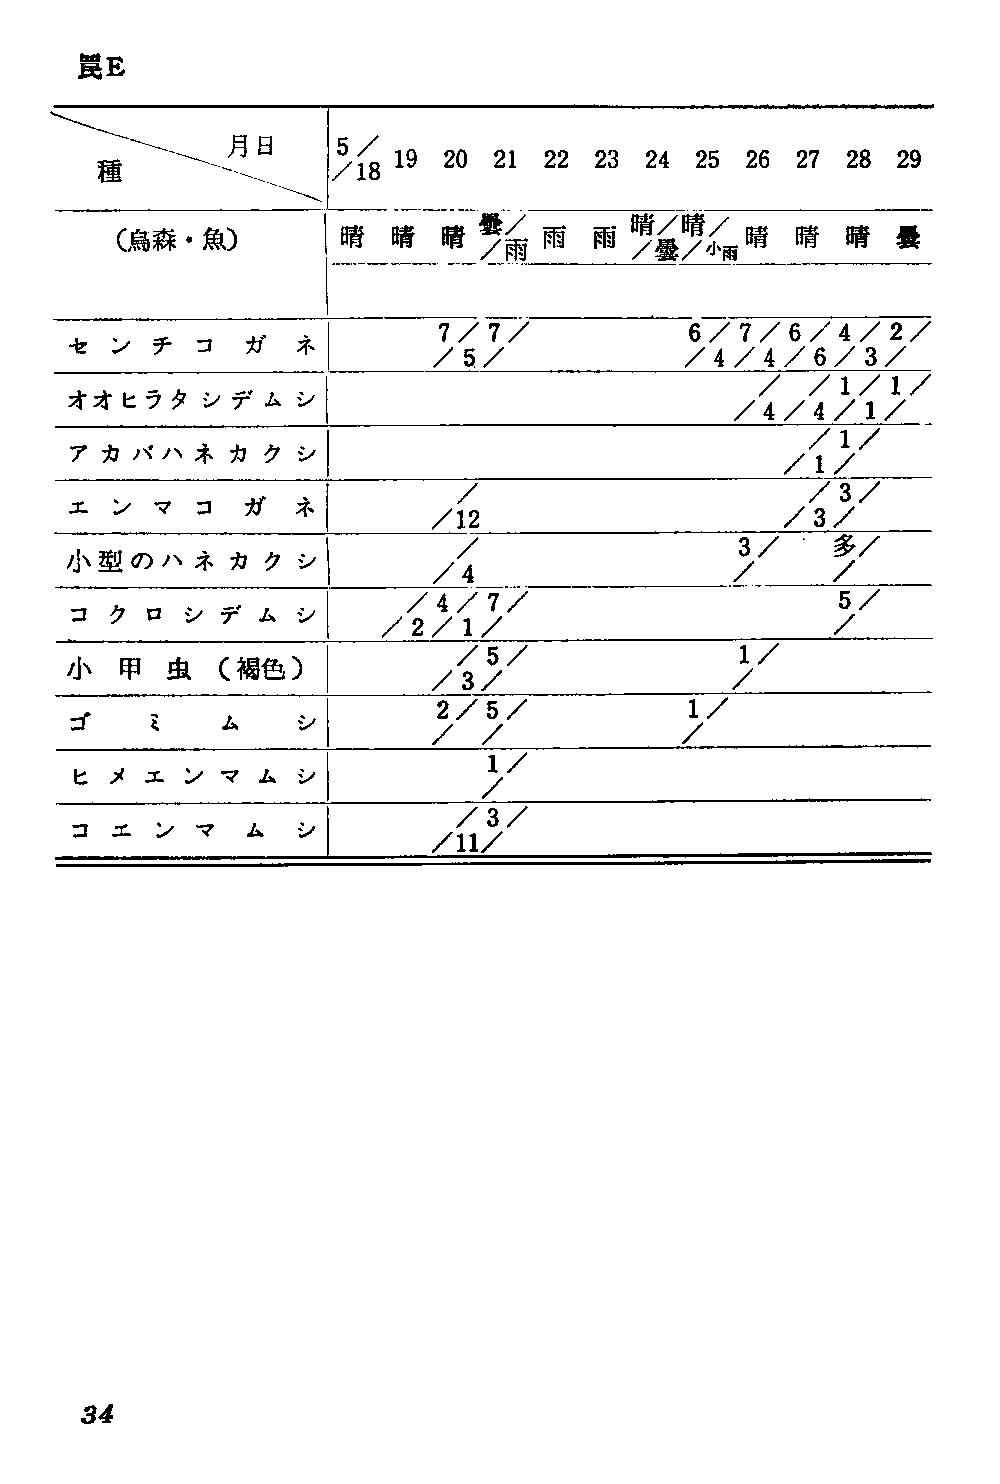 罠E
種 月日 5/18 19 20 21 22 23 24 25 26 27 28 29
(烏森・魚) 晴 晴 晴 曇/雨 雨 雨 晴/曇 晴/小雨 晴 晴 晴 曇
センチコガネ 7/5 7/ 6/4 7/4 6/6 4/3 2/
オオヒラタシデムシ /4 /4 1/1 1/
アカバハネカクシ /1 1/
エンマコガネ /12 /3 3/
小型のハネカクシ /4 3/ 多/
コクロシデムシ /2 4/1 7/ 5/
小甲虫(褐色) /3 5/ 1/
ゴミムシ 2/ 5/ 1/
ヒメエンマムシ 1/
コエンマムシ /11 3/
34